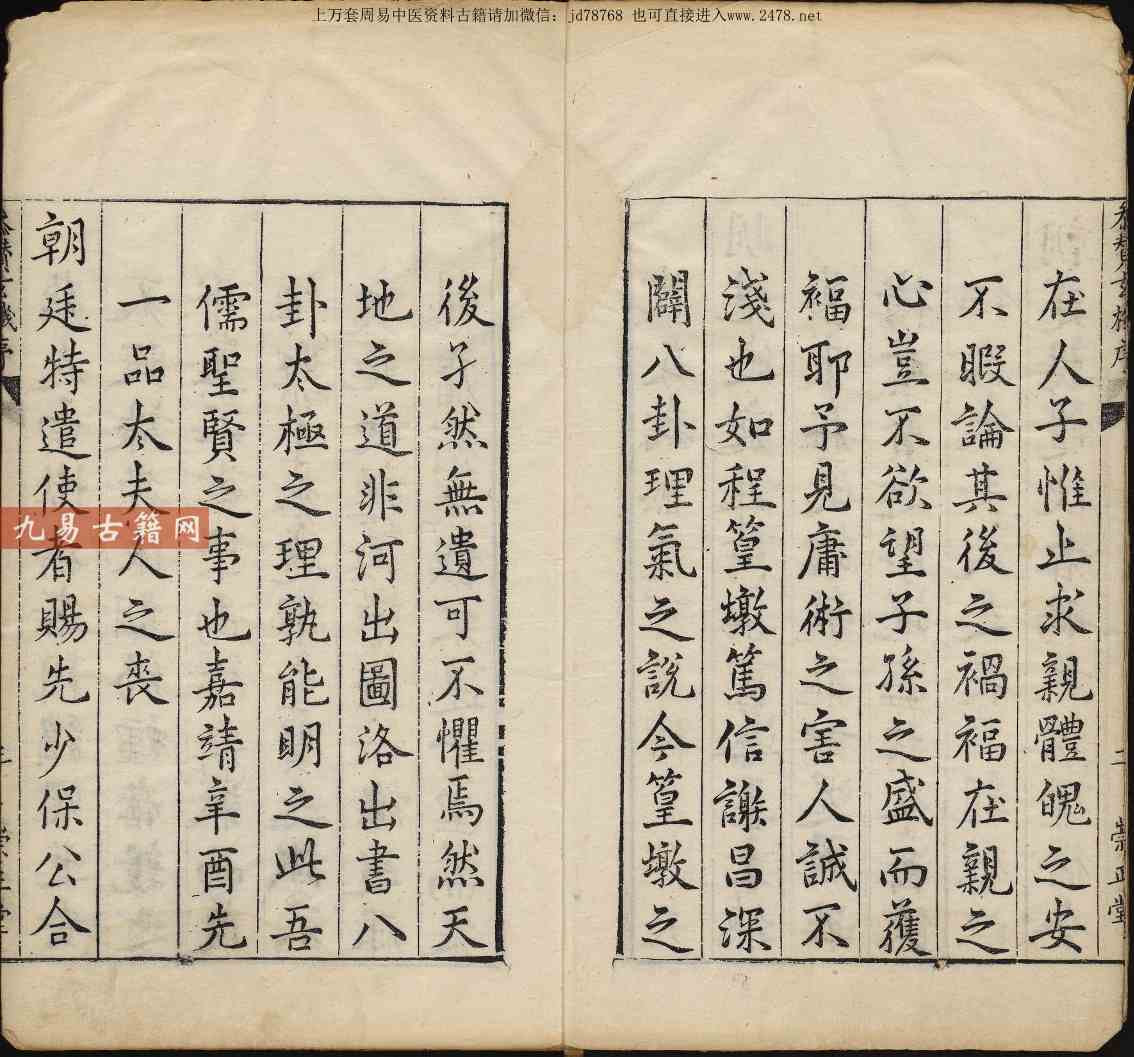 上万套周易中医资料古籍请加微信：jd78768 也可直接进入www.2478.net
在人子惟止求親體魄之安
不暇論其後之禍福在親之
心豈不欲望子孫之盛而獲
福耶予見庸術之害人誠不
淺也如程篁墩篤信謝昌深
闢八卦理氣之說今篁墩之
後孑然無遺可不懼焉然天
地之道非河出圖洛出書八
卦太極之理孰能明之此吾
儒聖賢之事也嘉靖辛酉先
一品太夫人之喪
朝廷特遣使者賜先少保公合
九易古籍网